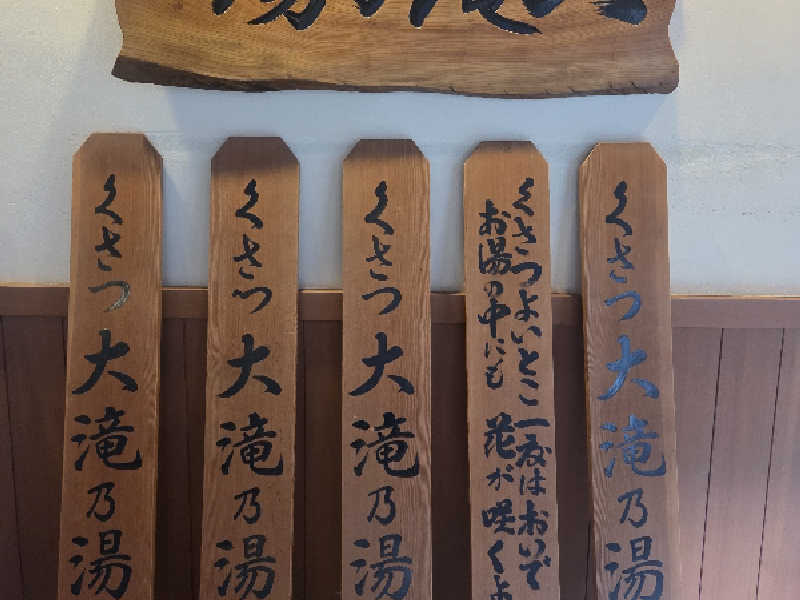 くさつ大滝乃湯
くさつよいとこ一度はおいで
お湯の中にも花が咲くよ
くさつ大滝乃湯
くさつ大滝乃湯
くさつ大滝乃湯